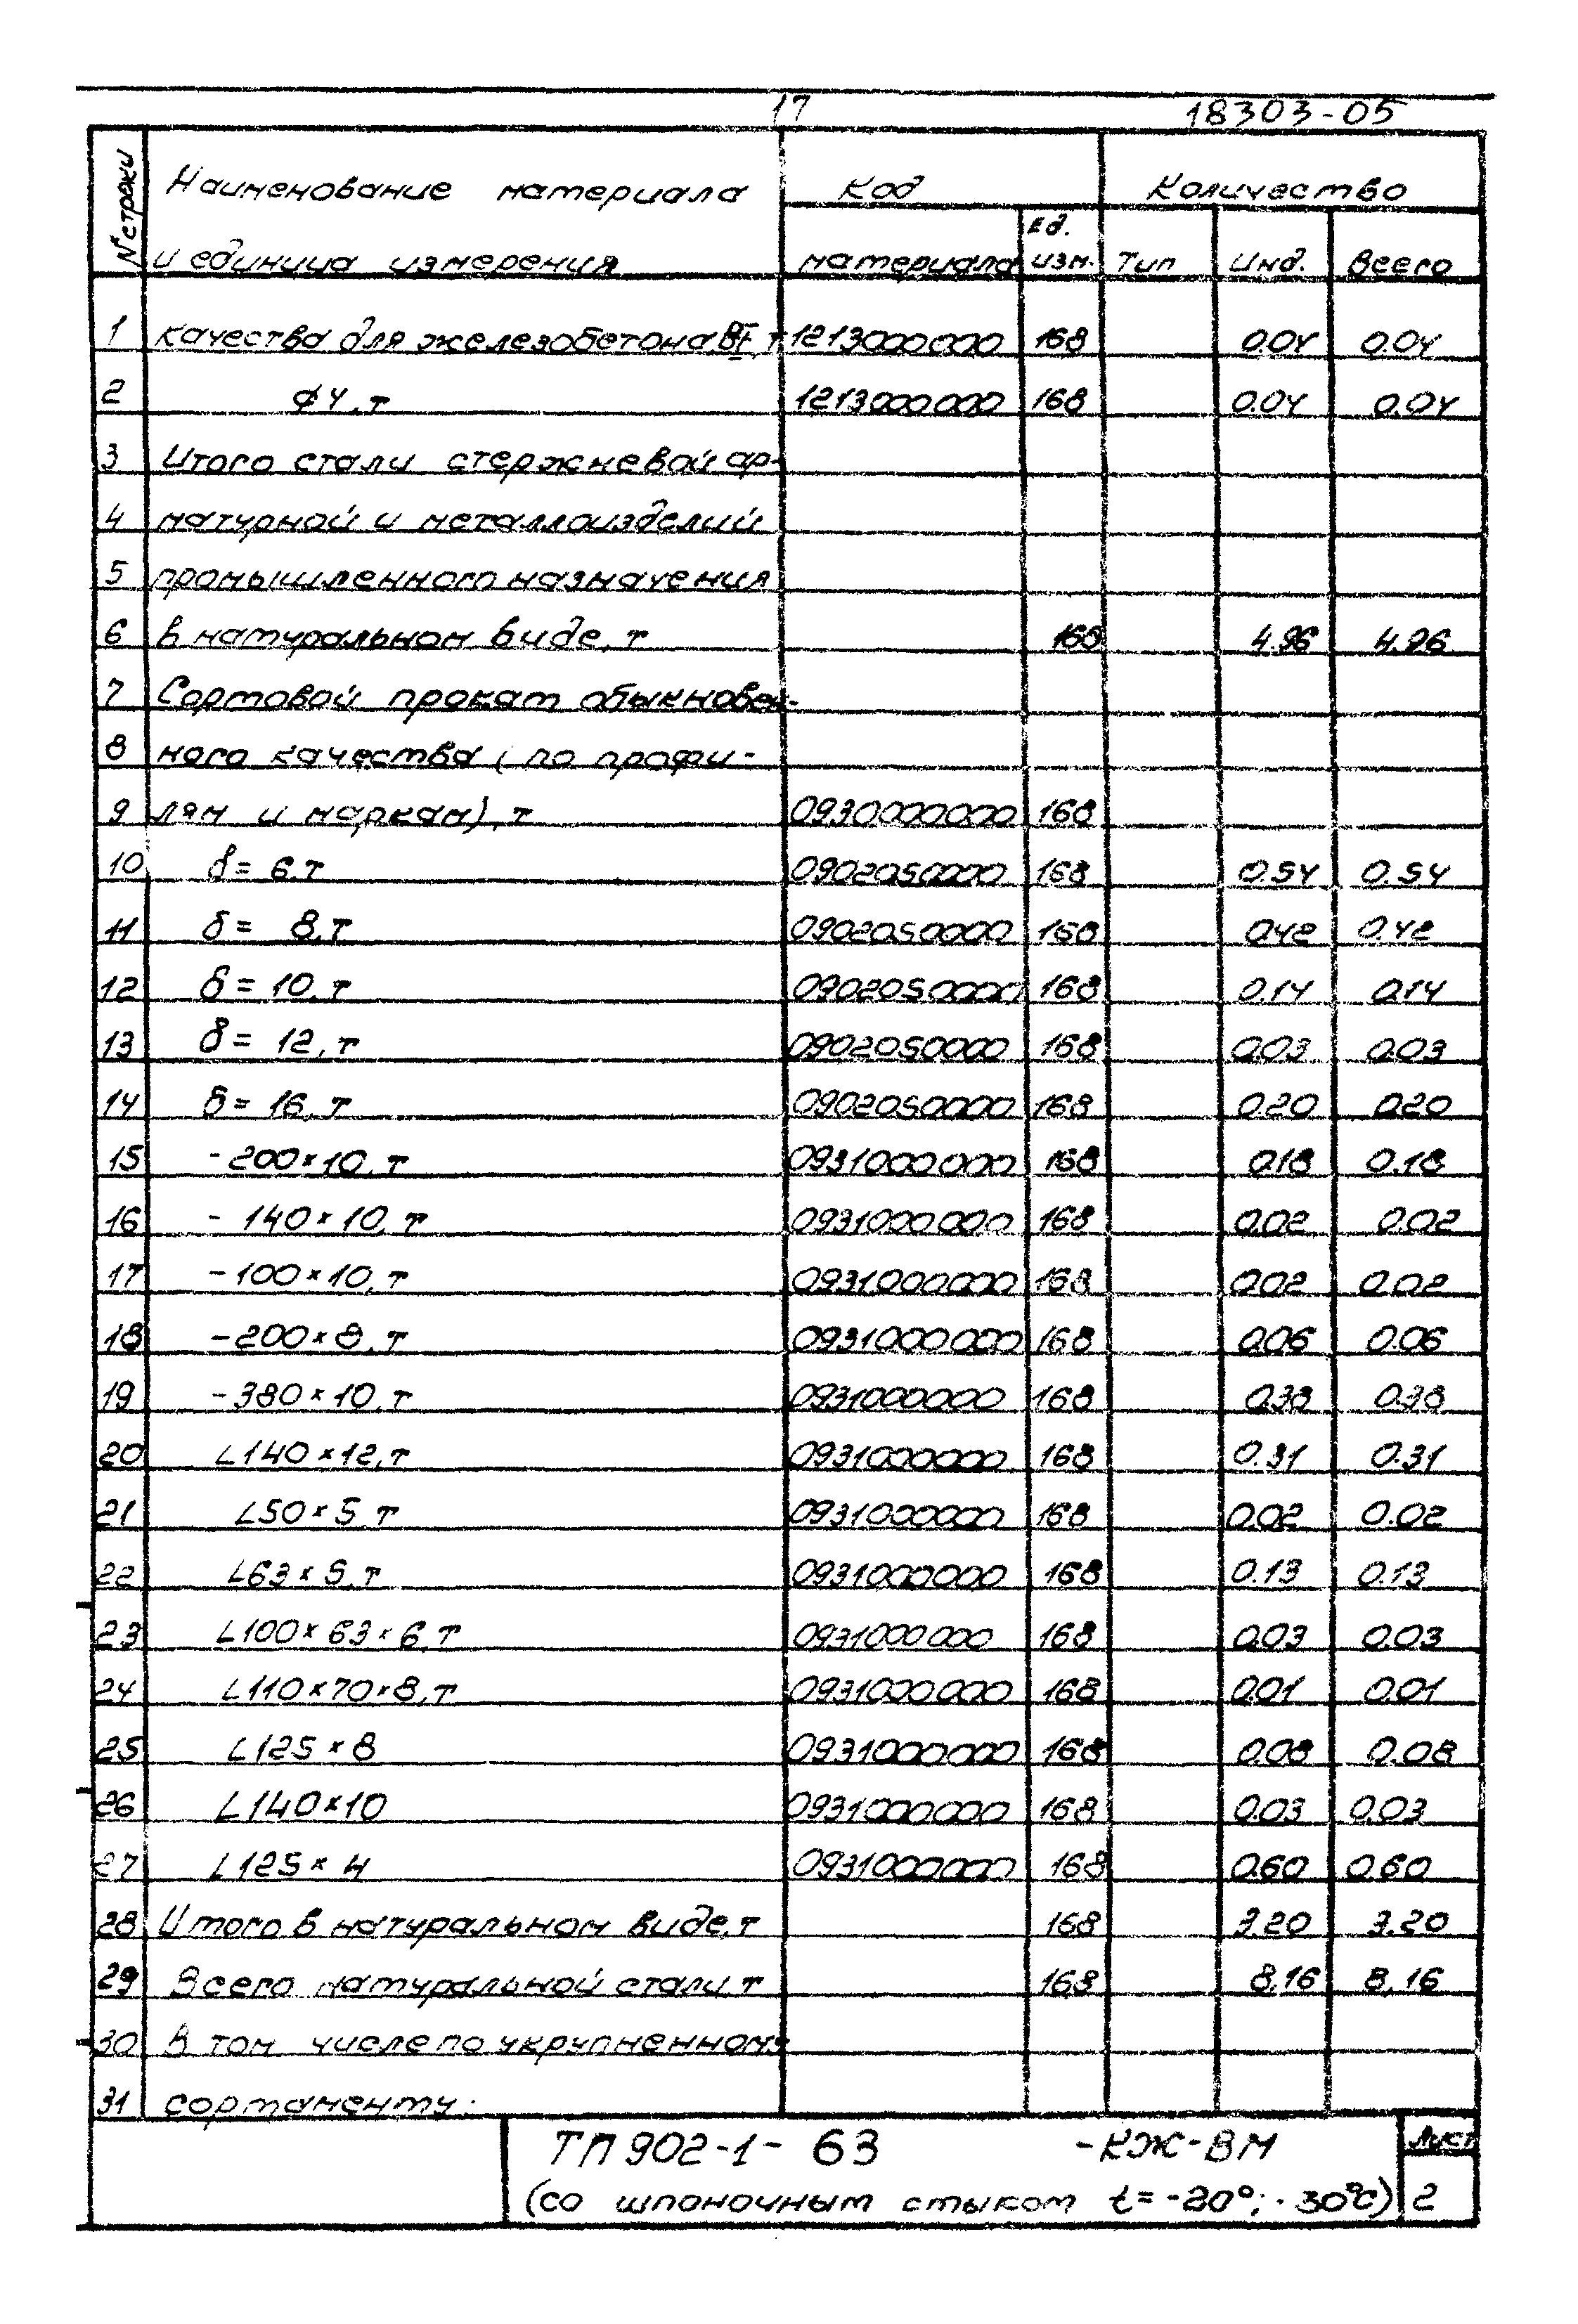 17 18303-05
№ строки Наименование материала Код Количество
и единица измерения материала Ед. изм. Тип Инд. Всего
1 качества для железобетона ВI, т 1213000000 168 0.04 0.04
2 ф4, т 1213000000 168 0.04 0.04
3 Итого стали стержневой ар-
4 матурной и металлоизделий
5 промышленного назначения
6 в натуральном виде, т 168 4.96 4.96
7 Сортовой прокат обыкновен-
8 ного качества (по профи-
9 лям и маркам), т 0930000000 168
10 δ= 6, т 0902050000 168 0.54 0.54
11 δ= 8, т 0902050000 168 0.42 0.42
12 δ= 10, т 0902050000 168 0.14 0.14
13 δ= 12, т 0902050000 168 0.03 0.03
14 δ= 16, т 0902050000 168 0.20 0.20
15 -200×10, т 0931000000 168 0.18 0.18
16 - 140×10, т 0931000000 168 0.02 0.02
17 -100×10, т 0931000000 168 0.02 0.02
18 -200×8, т 0931000000 168 0.06 0.06
19 -380×10, т 0931000000 168 0.38 0.38
20 L140×12, т 0931000000 168 0.31 0.31
21 L50×5, т 0931000000 168 0.02 0.02
22 L63×5, т 0931000000 168 0.13 0.13
23 L100×63×6, т 0931000000 168 0.03 0.03
24 L110×70×8, т 0931000000 168 0.01 0.01
25 L125×8 0931000000 168 0.08 0.08
26 L140×10 0931000000 168 0.03 0.03
27 L125×4 0931000000 168 0.60 0.60
28 Итого в натуральном виде, т 168 3.20 3.20
29 Всего натуральной стали, т 168 8.16 8.16
30 В том числе по укрупненному
31 сортаменту:
ТП 902-1- 63 -КЖ-ВМ Лист
(со шпоночным стыком t= -20°; -30°С) 2